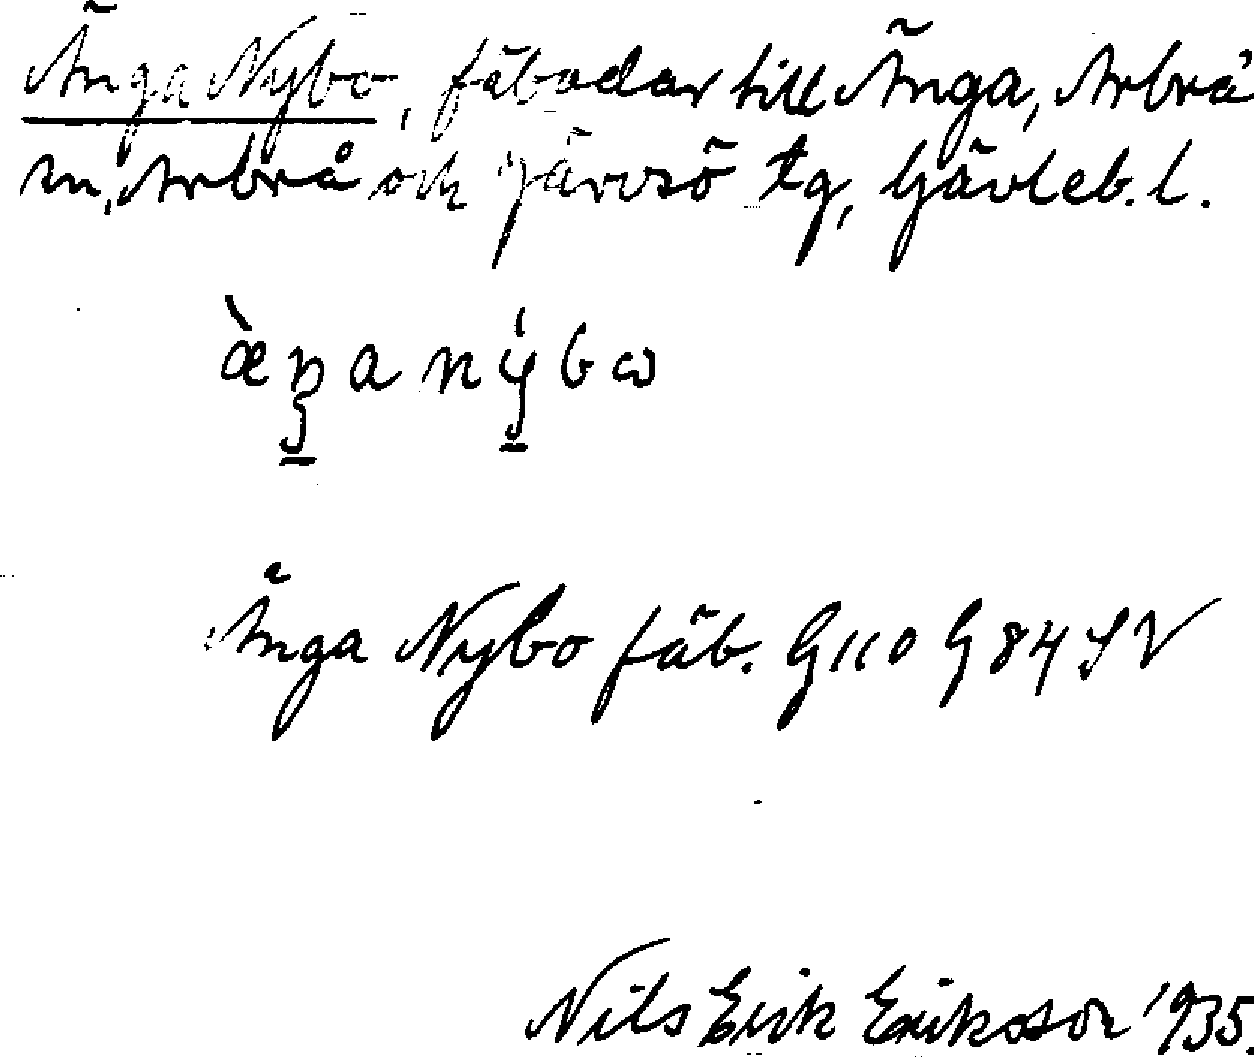 Änga Nybo, fäbodar till Änga, Arbrå
sn, Arbrå och Järvsö tg, Gävleb. l.
ä̀ŋa nýbω
Änga Nybo fäb. G110 G84 SV
Nils Erik Eriksson 1935.